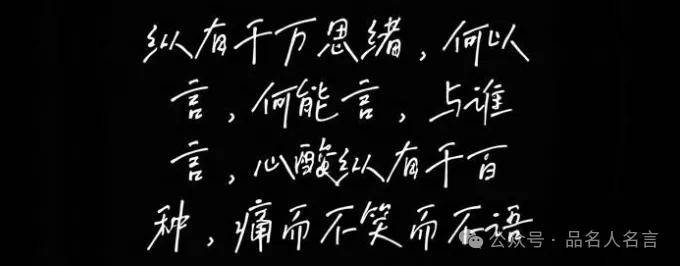 纵有千万思绪，何以
言，何能言，与谁
言，心酸纵有千百
种，痛而不笑而不语
公众号·品名人名言